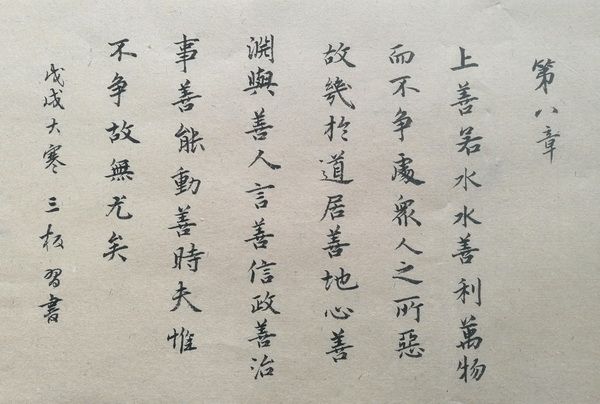 第八章
上善若水水善利萬物
而不争處衆人之所惡
故幾於道居善地心善
淵與善人言善信政善治
事善能動善時夫惟
不争故無尤矣
戊戌大寒三板習書